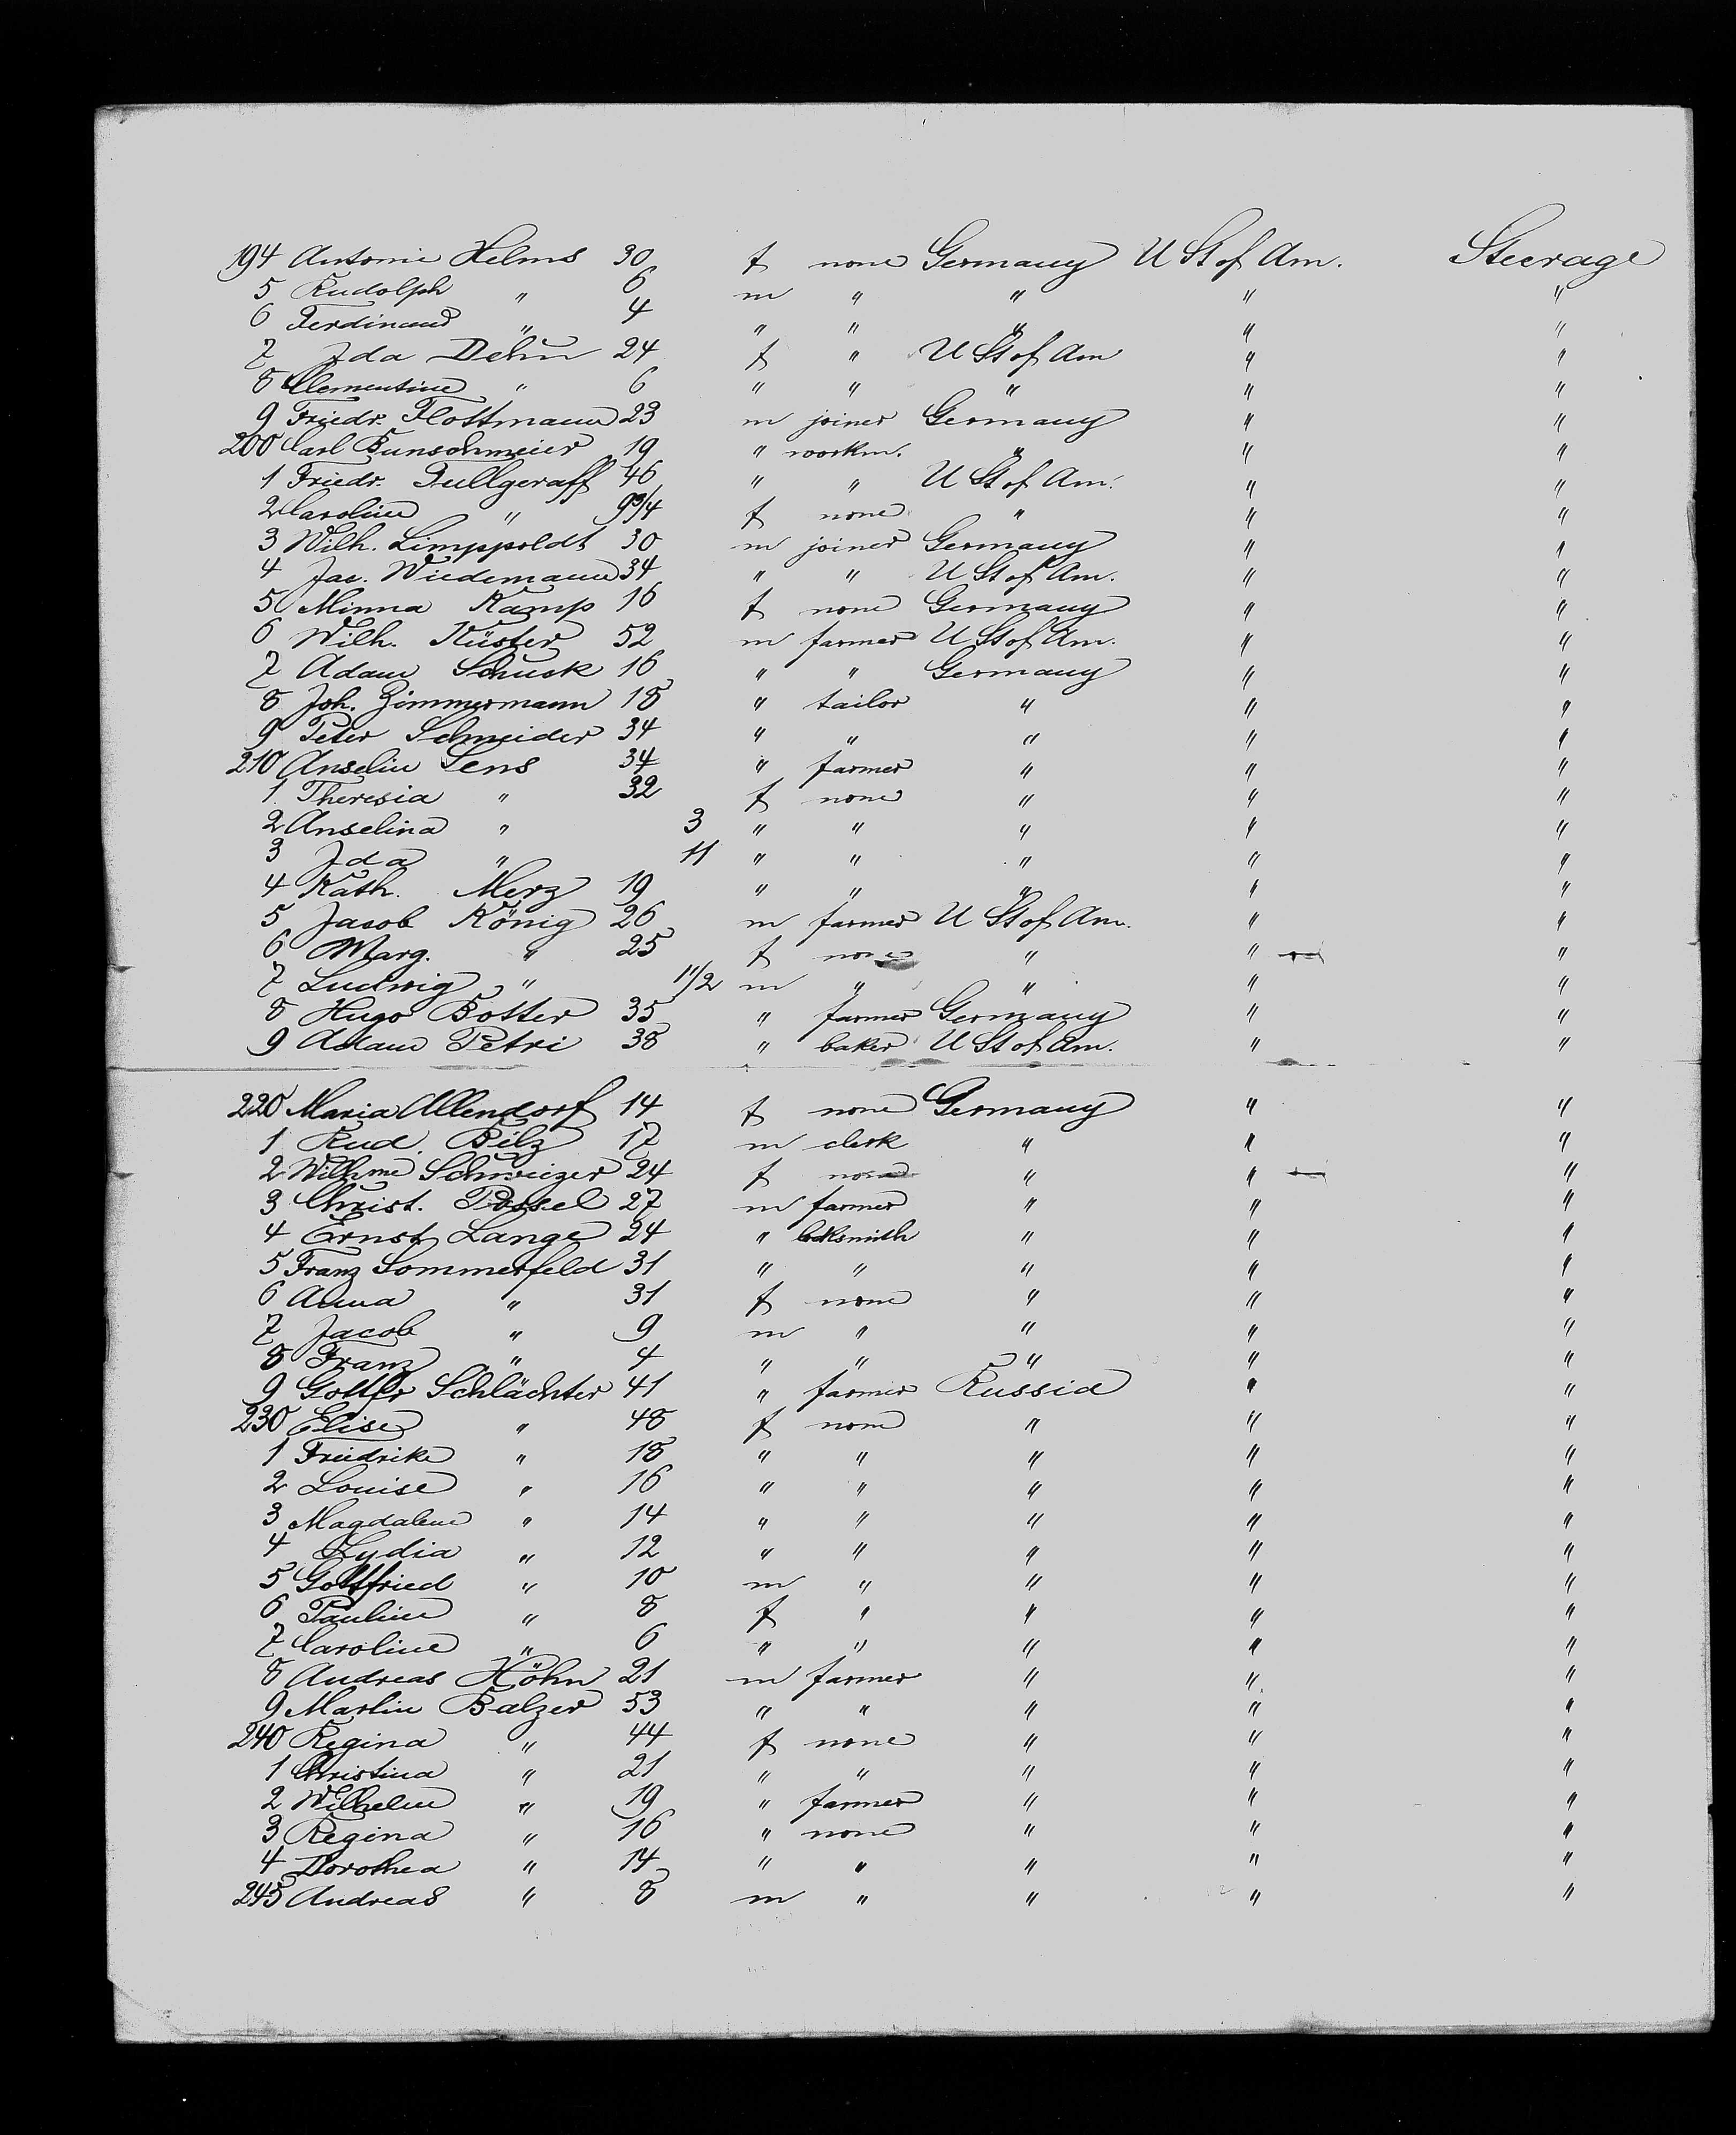 194 Antonie Helms 30 f none Germany U St of Am. Steerage
5 Rudolph " 6 m " " " "
6 Ferdinand " 4 " " " " "
7 Ida Dehn 24 f " U St of Am " "
8 Clementine " 6 " " " " "
9 Friedr. Flottmann 23 m joiner Germany " "
200 Carl Bunschmeier 19 " workm. " " "
1 Friedr. Fullgeraff 46 " " U St of Am. " "
2 Caroline " 9 3/4 f none " " "
3 Wilh. Limppoldt 30 m joiner Germany " "
4 Jac. Wiedemann 34 " " U St of Am. " "
5 Minna Kamp 16 f none Germany " "
6 Wilh. Küster 52 m farmer U St of Am. " "
7 Adam Schuck 16 " " Germany " "
8 Joh. Zimmermann 18 " tailor " " "
9 Peter Schneider 34 " " " " "
210 Anselm Lens 34 " farmer " " "
1 Theresia " 32 f none " " "
2 Anselina " 3 " " " " "
3 Ida " 11 " " " " "
4 Kath. Merz 19 " " " " "
5 Jacob König 26 m farmer U St of Am. " "
6 Marg. " 25 f none " " "
7 Ludwig " 11/2 m " " " "
8 Hugo Botter 35 " farmer Germany " "
9 Adam Petri 38 " baker U St of Am. " "
220 Maria Allendorf 14 f none Germany " "
1 Rud. Bilz 17 m clerk " " "
2 Wilhme Schweizer 24 f none " " "
3 Christ. Possel 27 m farmer " " "
4 Ernst Lange 24 " locksmith " " "
5 Franz Sommerfeld 31 " " " " "
6 Anna " 31 f none " " "
7 Jacob " 9 m " " " "
8 Franz " 4 " " " " "
9 Gottfr Schlächter 41 " farmer Russia " "
230 Elise " 48 f none " " "
1 Friedrike " 18 " " " " "
2 Louise " 16 " " " " "
3 Magdalene " 14 " " " " "
4 Lydia " 12 " " " " "
5 Gottfried " 10 m " " " "
6 Pauline " 8 f " " " "
7 Caroline " 6 " " " " "
8 Andreas Höhn 21 m farmer " " "
9 Martin Balzer 53 " " " " "
240 Regina " 44 f none " " "
1 Christina " 21 " " " " "
2 Wilhelm " 19 " farmer " " "
3 Regina " 16 " none " " "
4 Dorothea " 14 " " " " "
245 Andreas " 8 m " " " "